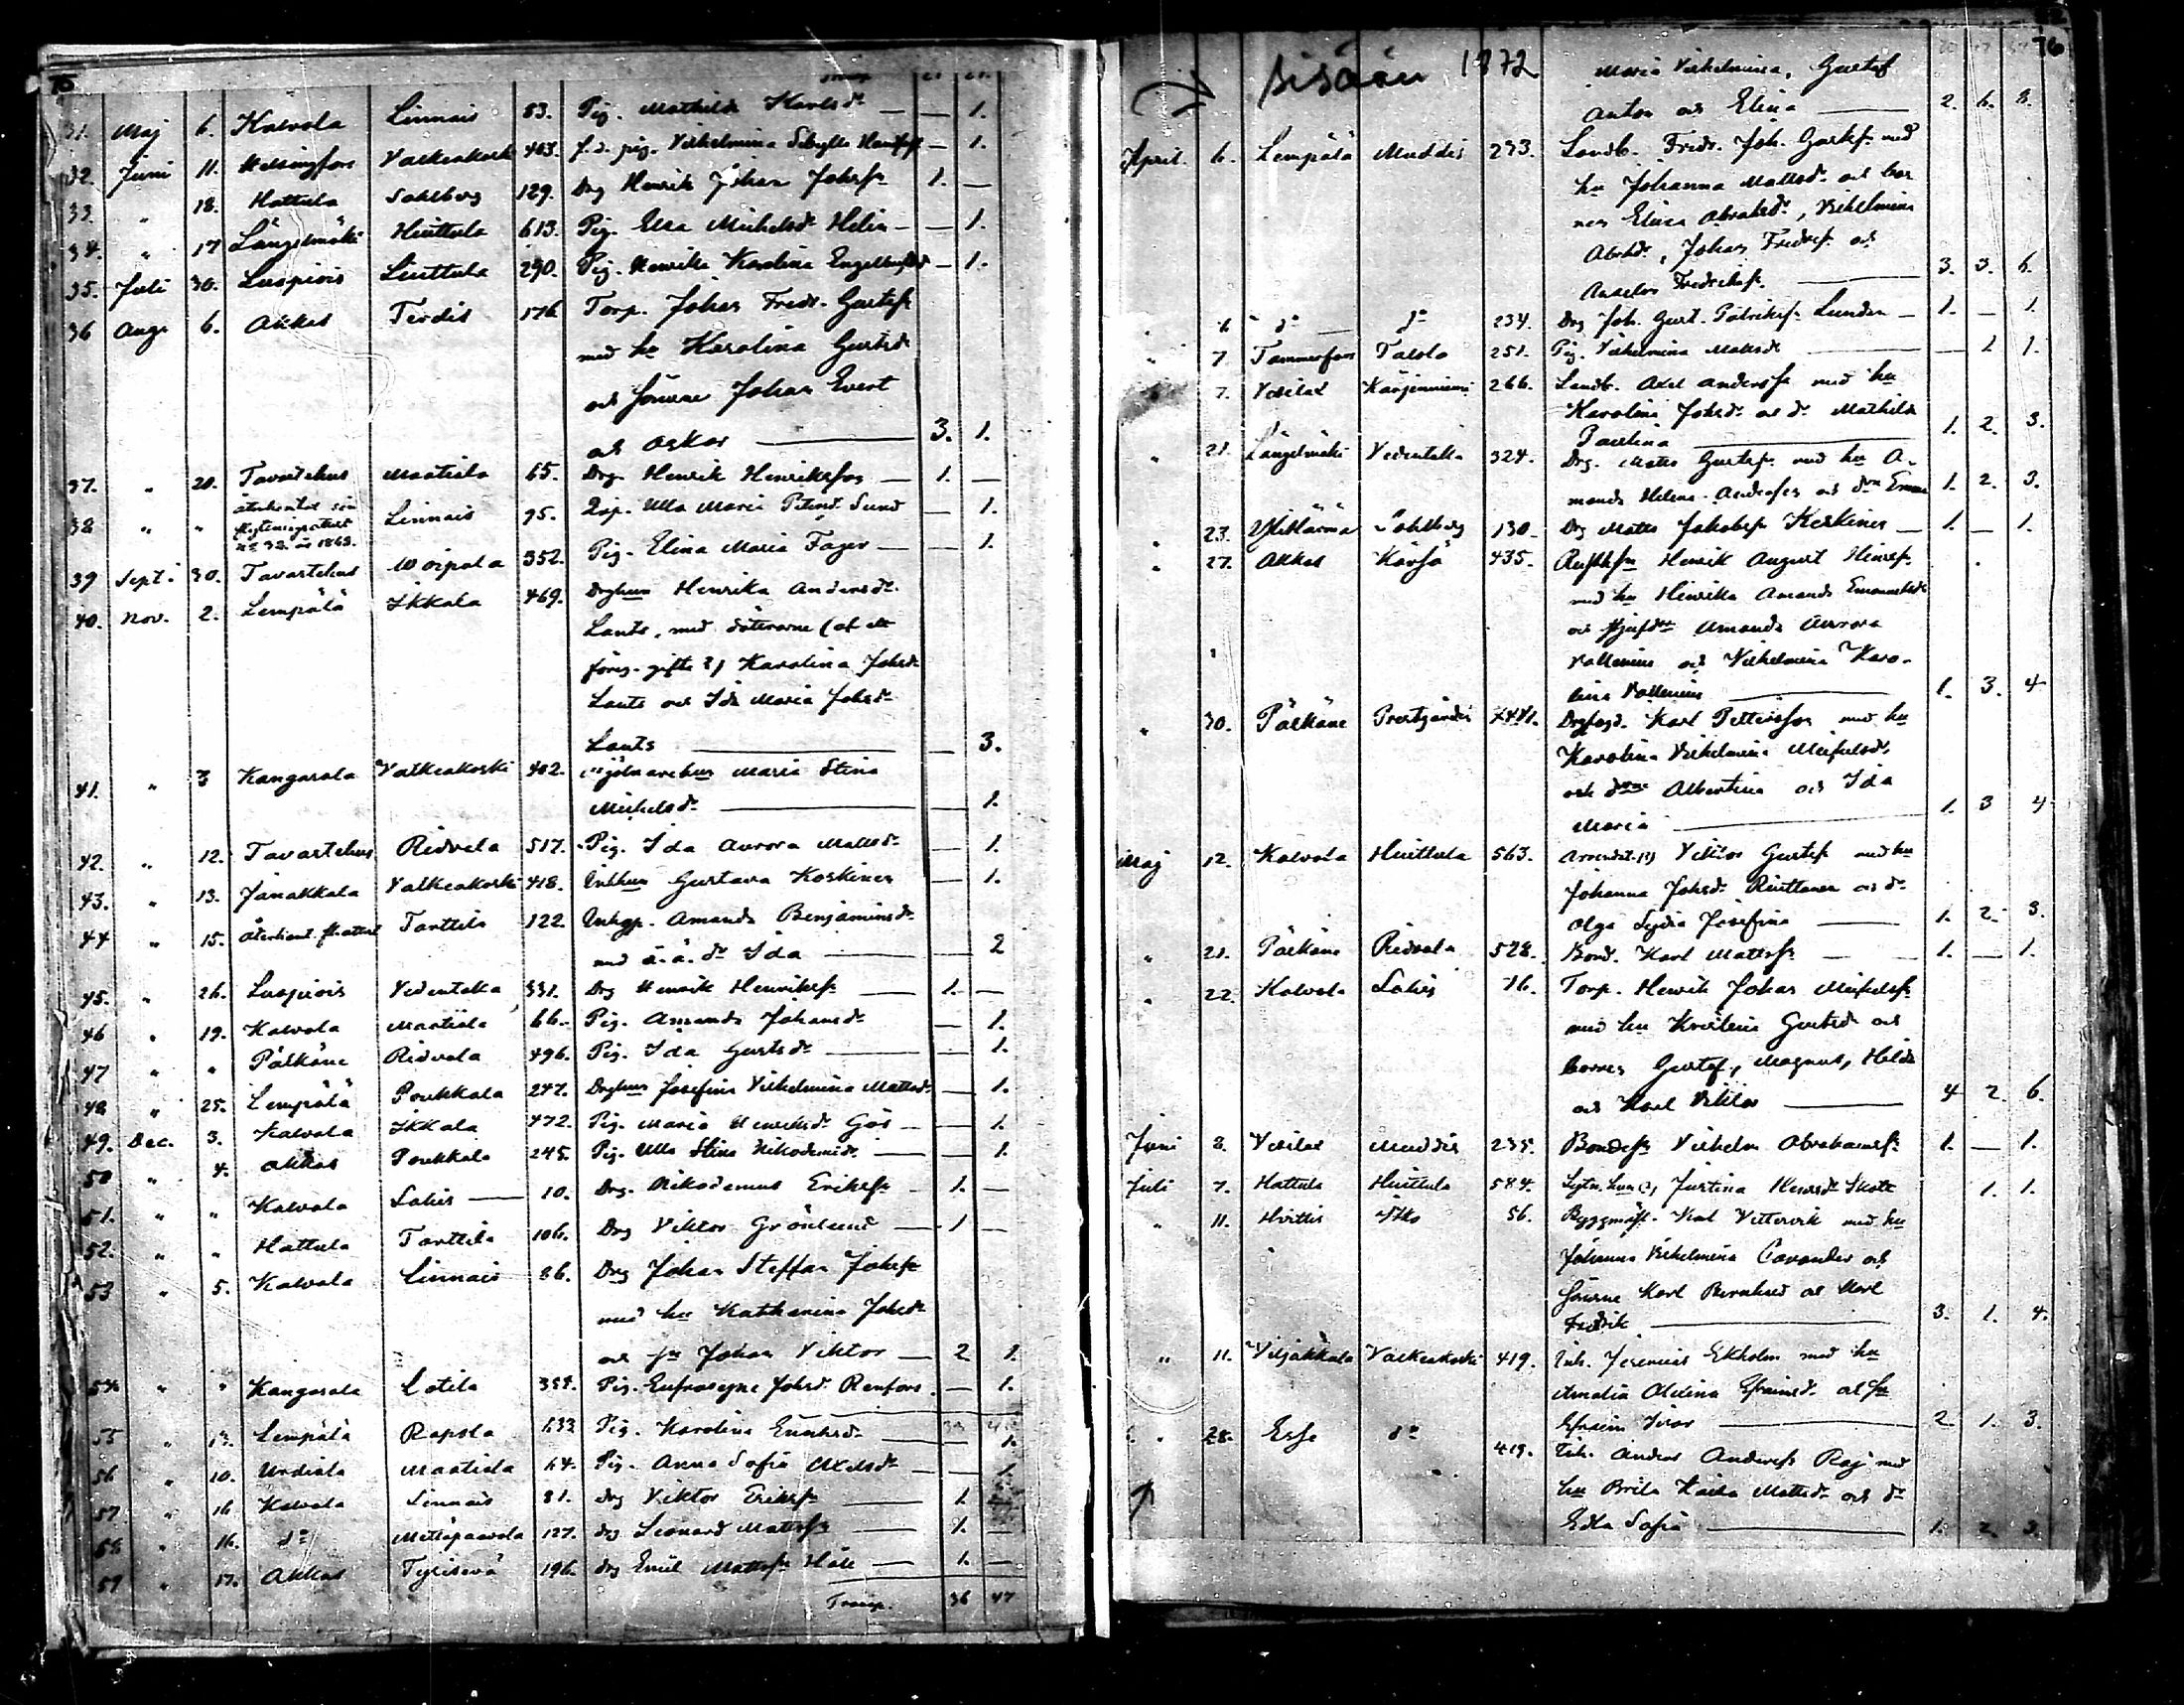 75
Transp.
31. Maj 6. Kalvola Linnais 83. Pig. Mathilda Karlsdr — 1.
32. Juni 11. Helsingfors Valkeakoski 403. f.d. pig. Vilhelmina Sibylla — 1.
33. " 18. Hattula Sahlberg 129. Drg Henrik Johan Johsfn 1. —
34. " 17 Längelmäki Huittula 613. Pig. Elsa Michelsdr Helin — 1.
35. Juli 30. Luopiois Liuttula 290. Pig. Henrika Karolina — 1.
36 Aug. 6. Akkas Terdis 176 Torp. Johan Fredr. Gustfsn
med hu Karolina Gustsdr
och sönerne Johan Evert
och Oskar — 3. 1.
37. " 20. Tavastehus Maatiala 65. Drg. Henrik Henriksson — 1. —
38 " " återkomlet sin
flyttningsattest
No 32. år 1869. Linnais 95. Ulla Maria Sund — 1.
39 Sept. 30. Tavastehus Woipala 352. Pig. Elina Maria Fager — — 1.
40. Nov. 2. Lempälä Ikkala 469. Drghun Henrika Andersdr
Lants, med döterarne (af ett
föreg. gifte ?) Karolina Johsdr
Lants och Ida Maria Johsdr
Lants — — 3.
41. " 3 Kangasala Valkeakoski 402. Mjölnarehus Maria Stina
Michelsdr — — 1.
42. " 12. Tavastehus Ridvala 517. Pig. Ida Aurora Mattsdr — 1.
43. " 13. Janakkala Valkeakoski 418. Inhhun Gustava Koskinen — 1.
44 " 15. Tarttila 122. Inhgp. Amanda Benjaminsdr
med ä.ä. dr Ida — — 2
45. " 26. Luopiois Vedentaka 331. Drg Henrik Henriksfn — 1. —
46 " 19. Kalvola Maatiala 66. Pig. Amanda Johansdr — 1.
47 " " Pälkäne Ridvala 496. Pig. Ida Gustsdr — — 1.
48 " 25. Lempälä Poukkala 247. Drghun Josefina Vilhelmina Mattsdr — 1.
49. Dec. 3. Kalvola Ikkala 472. Pig. Maria Henriksdr Gös — — 1.
50 " 4. Akkas Poukkala 245. Pig. Ulla Stina Nikodemidr — — 1.
51. " " Kalvola Lahis — 10. Drg. Nikodemus Eriksfn — 1. —
52. " " Hattula Tarttila 106. Drg Viktor Grönlund — 1 —
53 " 5. Kalvola Linnais 86. Drg Johan Steffan Johsfn
med hu Katharina Johsdr
och sn Johan Viktor — 2 1.
54 " " Kangasala Lotila 354. Pig. Eufrosyne Johsd. Renfors. — 1.
55 " 13. Lempälä Rapola 633 Pig. Karolina — 1.
56 " 10. Urdiala Maatiala 64. Pig. Anna Sofia Axelsdr — — 1.
57 " 16 Kalvola Linnais 81. Drg Viktor Eriksfn — 1. —
58 " 16. do Mettäpaavola 127. drg Leonard Mattsfn — 1. —
59 " 17. Akkas Tyrisevä 196. drg Emil Mattsfn Häll — 1. —
Transp. 36 47
76
sisään 1872
Maria Vilhelmina, Gustaf
Anton och Elina — 2. 6. 8.
April. 6. Lempälä Muddis 233. Landb. Fredr. Joh. Gustfsn med
hu Johanna Mattsdr och bar
nen Elina Abrahsdr, Vilhelmina
Abrhdr, Johan Fredrsfn och
Anselm Fredriksfn. — 3. 3. 6.
" 6 do — do 234. Drg Joh. Gust. Patriksfn Lunden — 1. — 1.
" 7. Tammerfors Talola 251. Pig. Vilhelmina Mattsdr — — 1 1.
" 7. Vesilax Karjenniemi 266. Landb. Axel Andersfn med hu
Karolina Johsdr och dr Mathilda
Paulina — 1. 2. 3.
" 21. Längelmäki Vedentaka 324. Drg. Matts Gustfsn med hu A.
manda Helena Andersfn och drn Emma 1. 2. 3.
" 23. Ylihärmä Sahlberg 130. Drg Matts Jakobsfn Keskinen — 1. — 1.
" 27. Akkas Kärjä 435. Henrik August Henrsfn
med hu Henrika Amanda Emanuelsdr
och Amanda Aurora
Vallenius och Vilhelmina Karo-
lina Vallenius — 1. 3. 4
" 30. Pälkäne Prestgården Karl Pettersson med hu
Karolina Vilhelmina Michelsdr
och drne Albertina och Ida
Maria — 1. 3 4
Maj 12. Kalvola Huittula 563. Arrendat.(?) Viktor Gustfsn med hu
Johanna Johsdr Riuttanen och dr
Olga Lydia Josefina — 1. 2. 3.
" 21. Pälkäne Ridvala 528. Bond. Karl Mattsfn — 1. — 1.
" 22. Kalvola Lahis 16. Torp. Henrik Johan Michelsfn
med hu Kristina Gustsdr och
barnen Gustaf, Magnus, Hilda
och Karl Viktor — 4 2. 6.
Juni 8. Vesilax Muddis 235. Bondesn Vilhelm Abrahamsfn. 1. — 1.
Juli 7. Hattula Huittula 584. Justina Henrsdr Skott 1. 1.
" 11. Hvittis 56. Byggmäst. Karl Vittervik med hu
Johanna Vilhelmina Cavander och
sönerne Karl Bernhard och Karl
Fredrik — 3. 1. 4.
" 11. Viljakkala Valkeakoski 419. Inh. Jeremias Ekholm med hu
Amalia Aldina Efraimsdr och sn
Efraim Ivar — 2 1. 3.
" 28. Esse do 419. Inh. Anders Andersfn Raj med
hu Brita Kaisa Mattsdr och dr
Edla Sofia — 1. 2. 3.